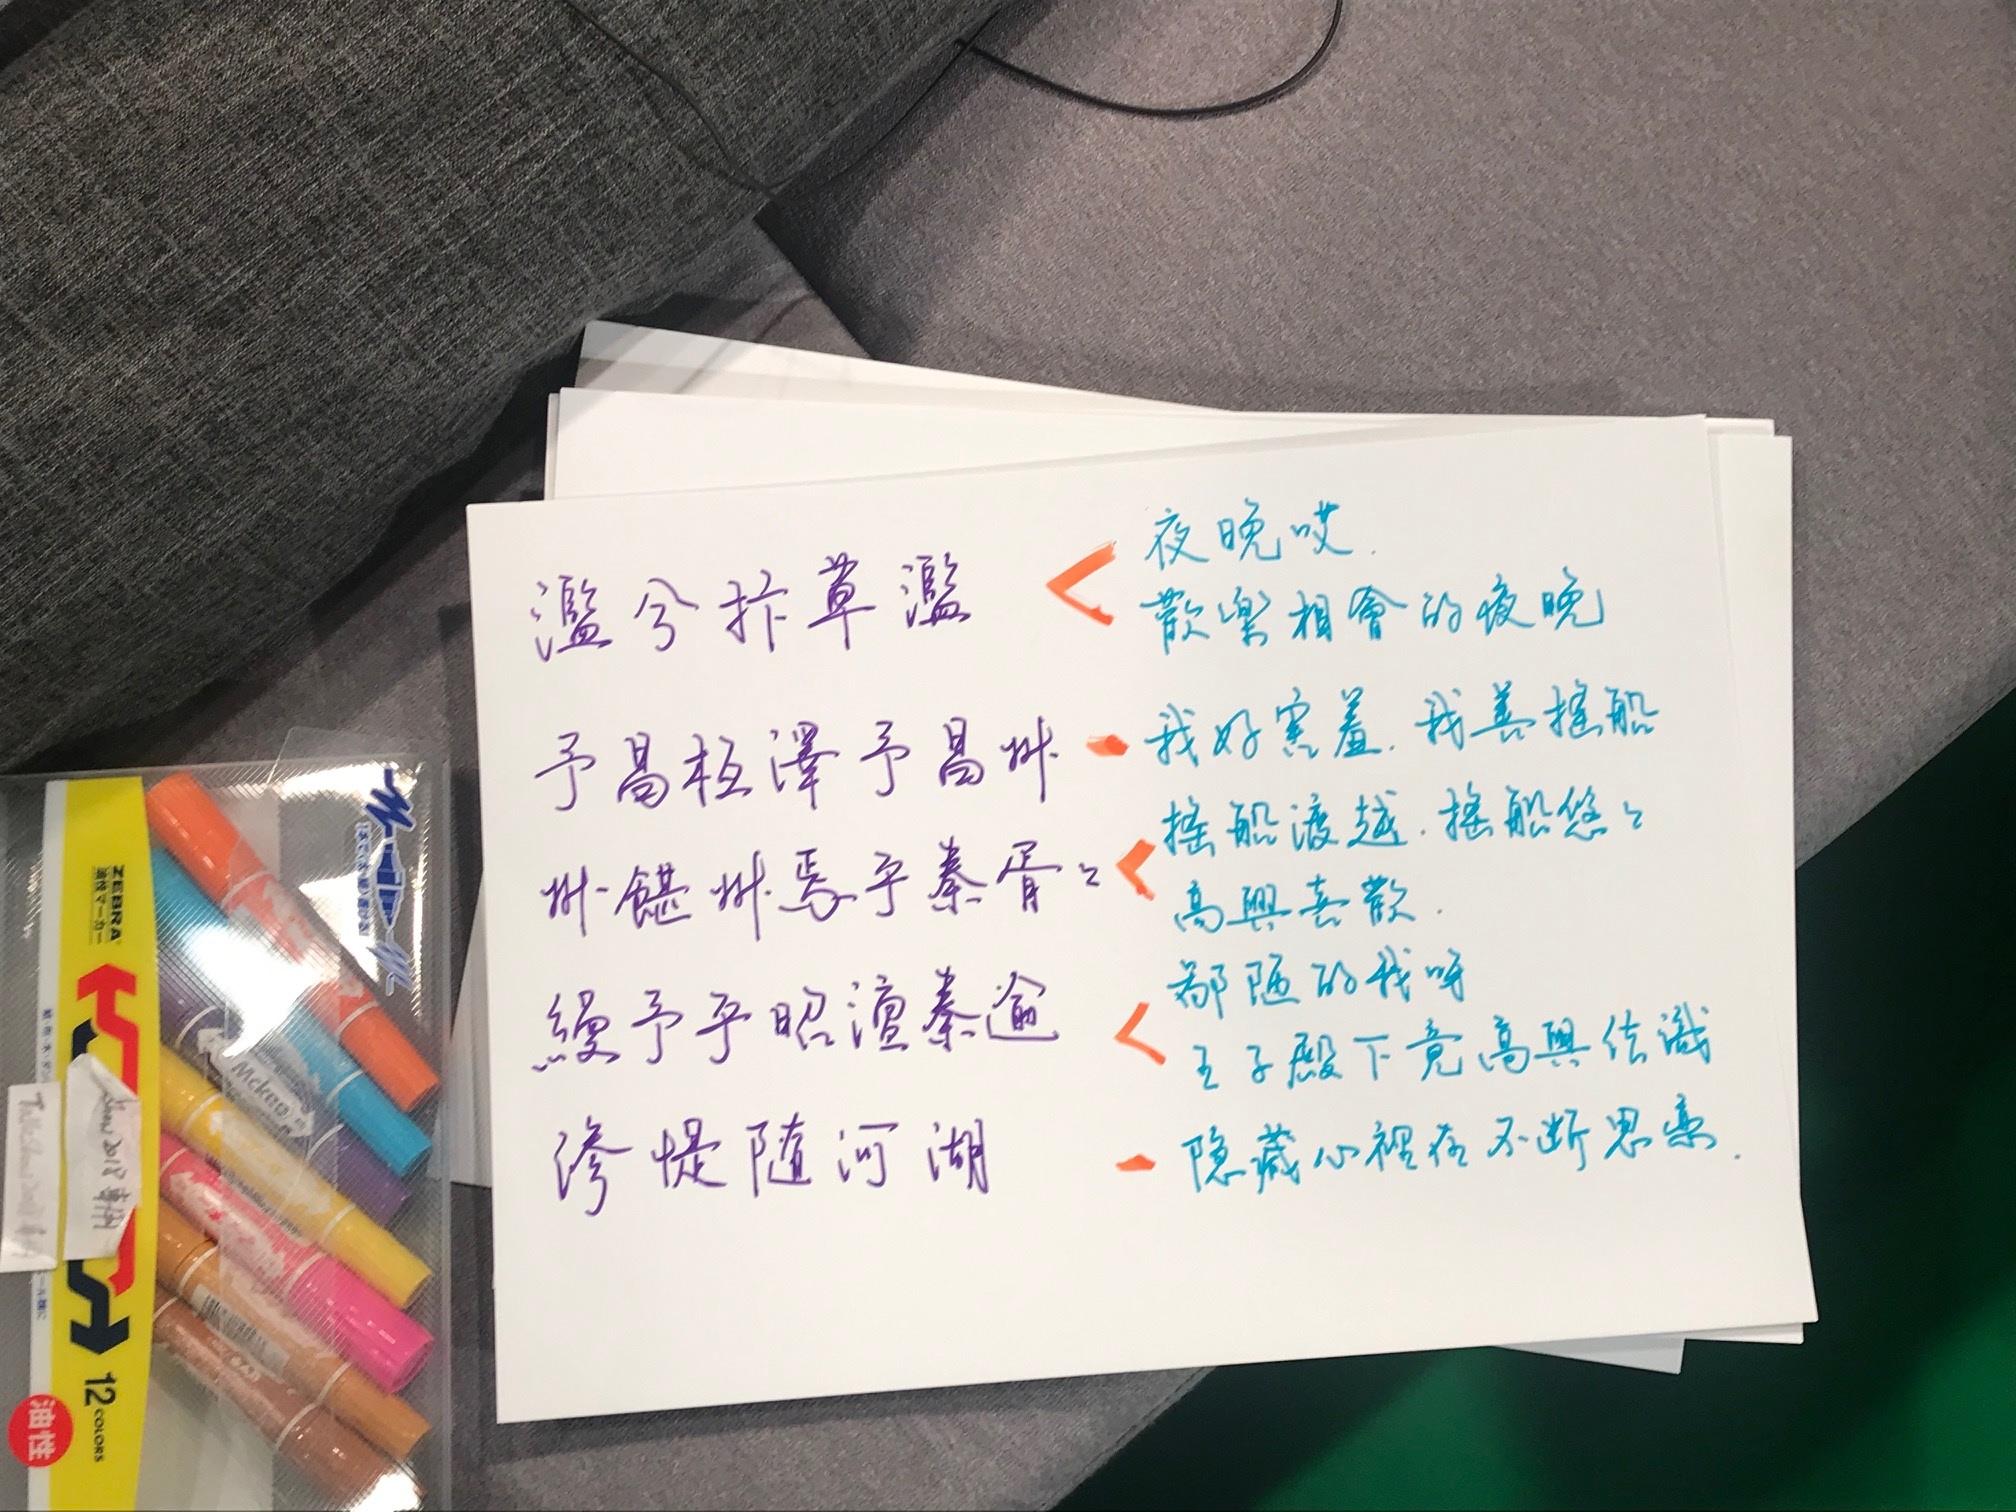 濫兮抃草濫
夜晚哎.
歡樂相會的夜晚
予昌枑澤予昌州
我好害羞.我善搖船
州𩜱州焉乎秦胥〻
搖船渡越.搖船悠〻
高興喜歡.
縵予乎昭澶秦逾
鄙陋的我呀
王子殿下竟高興结識
滲惿随河湖
隐藏心裡在不断思戀.
ZEBRA
油性マーカー
Mckee
12 COLORS
油性